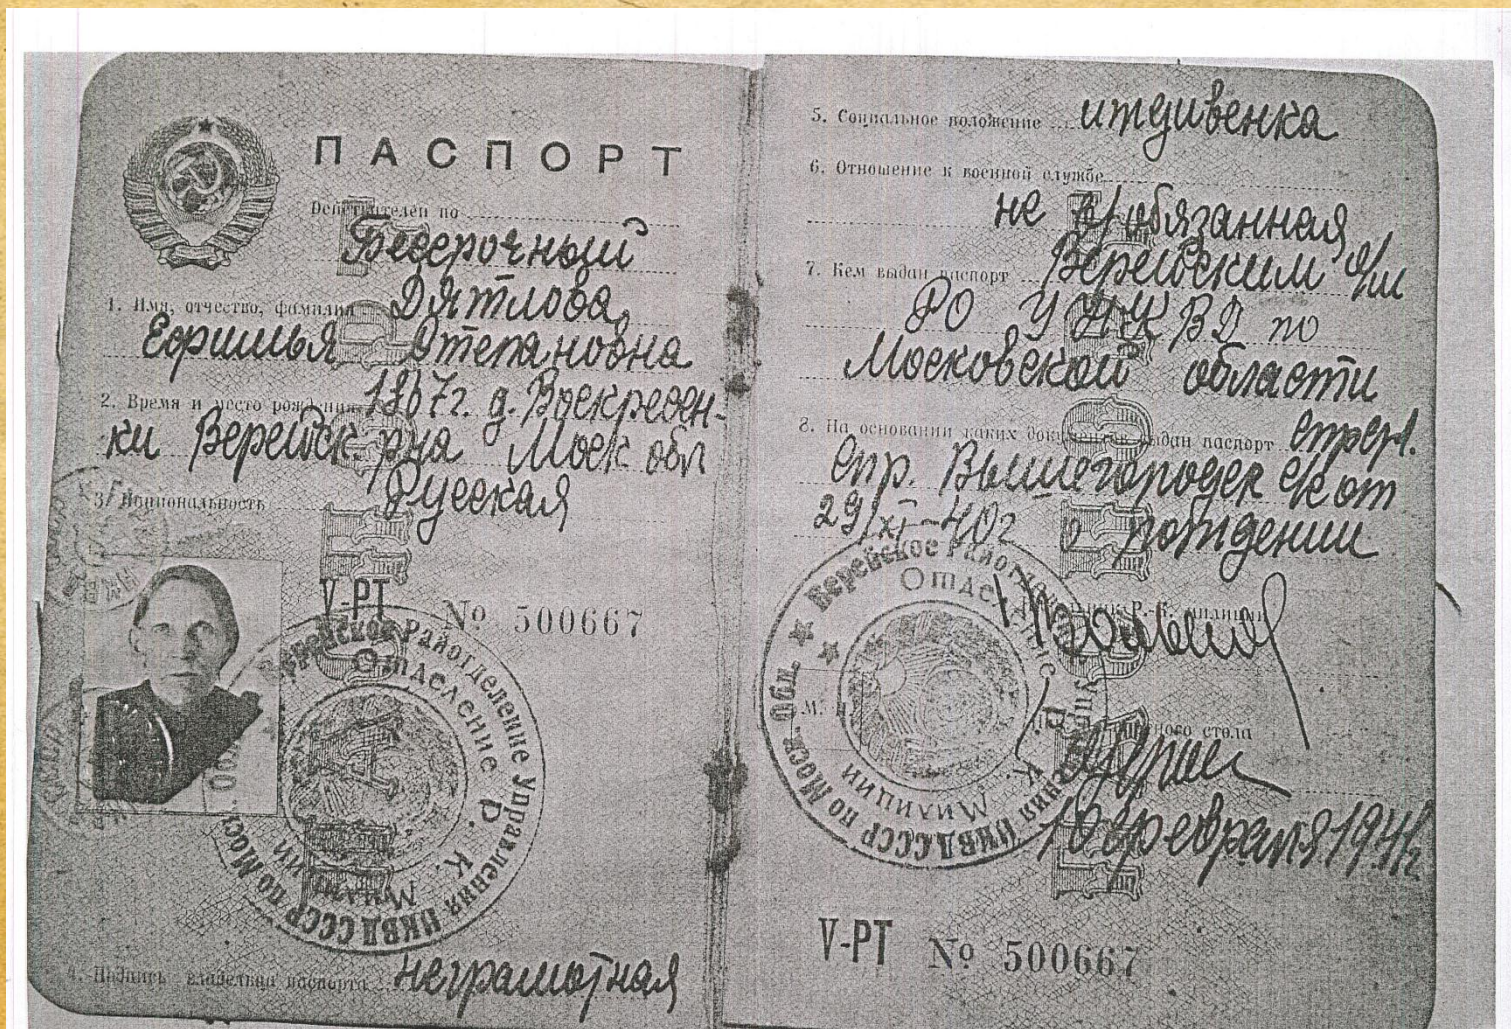 ПАСПОРТ
Действителен по
Бессрочный
1. Имя, отчество, фамилия Дятлова
Ефимья Степановна
2. Время и место рождения г. д. Воскресен-
ки Верейск. р-на Моск обл
3. Национальность Русская
V-РТ № 500667
Верейское Райотделение Управления НКВД СССР по Моск.
Отделение Р. К. Милиции
4. Подпись владельца паспорта неграмотная
5. Социальное положение иждивенка
6. Отношение к военной службе
не в/обязанная
7. Кем выдан паспорт Верейским
РО УНКВД по
Московской области
8. На основании каких документов выдан паспорт
спр. Вышегородск с/с от
29/XI-40г о рождении
Р.-К. милиции
М. П.
паспортного стола
Верейское Райотделение Управления НКВД СССР по Моск. Обл.
Отделение Р. К. Милиции
10 февраля 1941г
V-РТ № 500667